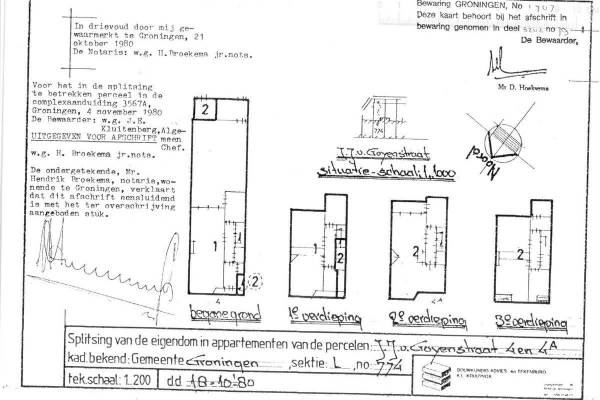 In drievoud door mij ge-
waarmerkt te Groningen, 21
oktober 1980
De Notaris: w.g. H.Broekema jr.nots.
Bewaring GRONINGEN, No
Deze kaart behoort bij het afschrift in
bewaring genomen in deel no
De Bewaarder,
Mr D. Hoeksema
Voor het in de splitsing
te betrekken perceel is de
complexaanduiding 3567A,
Groningen, 4 november 1980
De Bewaarder: w.g. J.H.
Kluitenberg, Alge-
UITGEGEVEN VOOR AFSCHRIFT meen
Chef.
w.g. H. Broekema jr.nots.
De ondergetekende, Mr.
Hendrik Broekema, notaris,wo-
nende te Groningen, verklaart
dat dit afschrift eensluidend
is met het ter overschrijving
aangeboden stuk.
774
J.J.v.Goyenstraat
situatie-schaal:1:1000
Noord
2
1
2
2
1
2
2
2
4A
begane grond
1e verdieping
2e verdieping
3e verdieping
Splitsing van de eigendom in appartementen van de percelen: J.J.v.Goyenstraat 4 en 4A
kad.bekend: Gemeente Groningen ,sektie: L ,no: 774
tek.schaal: 1:200 dd 18-10-'80
BOUWKUNDIG ADVIES- en TEKENBURO